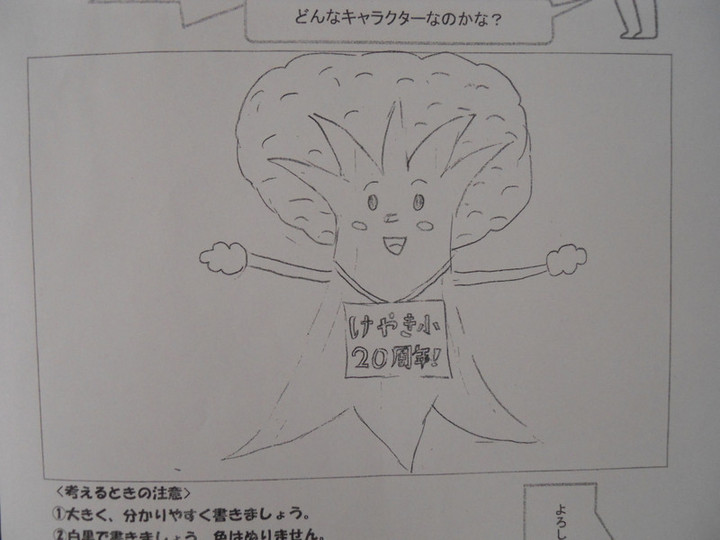 どんなキャラクターなのかな？
けやき小
20周年!
〈考えるときの注意〉
①大きく、分かりやすく書きましょう。
②白黒で書きましょう。色はぬりません。
よろし